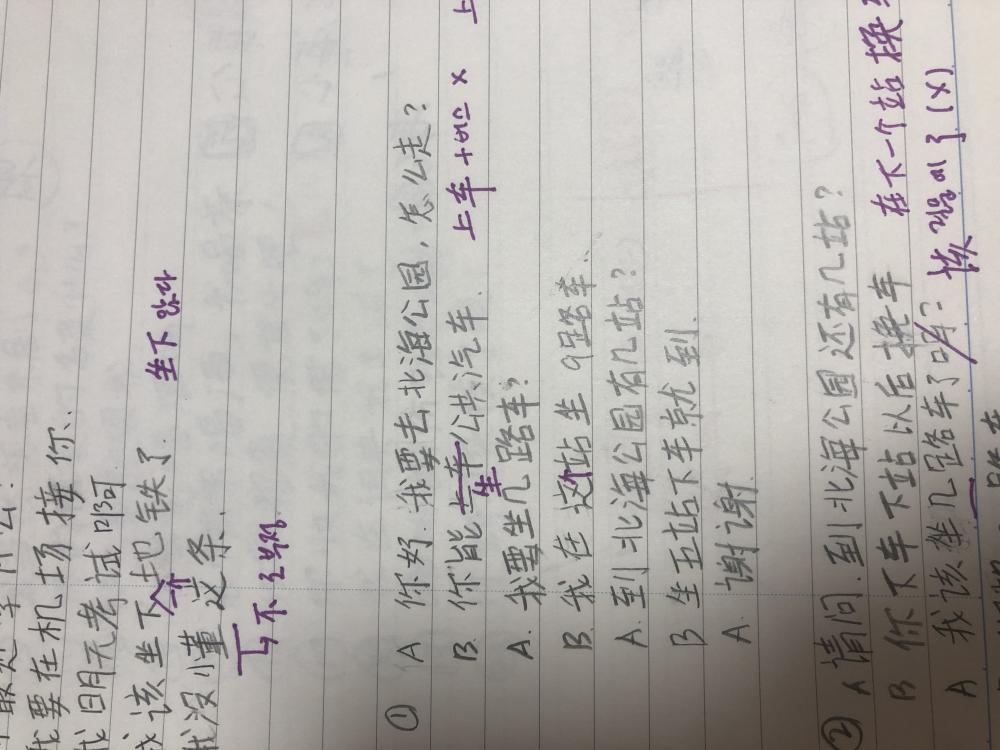 我要在机场接你.
我明天考试啊
我该坐下地铁了.
个
坐下 앉다
我没懂这条.
不 로 부정
① A 你好. 我要去北海公园, 怎么走?
B. 你能上车公共汽车.
坐
上车+버스 x
A. 我要坐几路车?
B. 我在这站坐9路车.
个
A. 到北海公园有几站?
B 坐五站下车就到.
A. 谢谢
② A 请问. 到北海公园还有几站?
B 你下车下站以后换车
在下一个站换
A 我该坐几路车了吗?
该 라음에 了 (x)